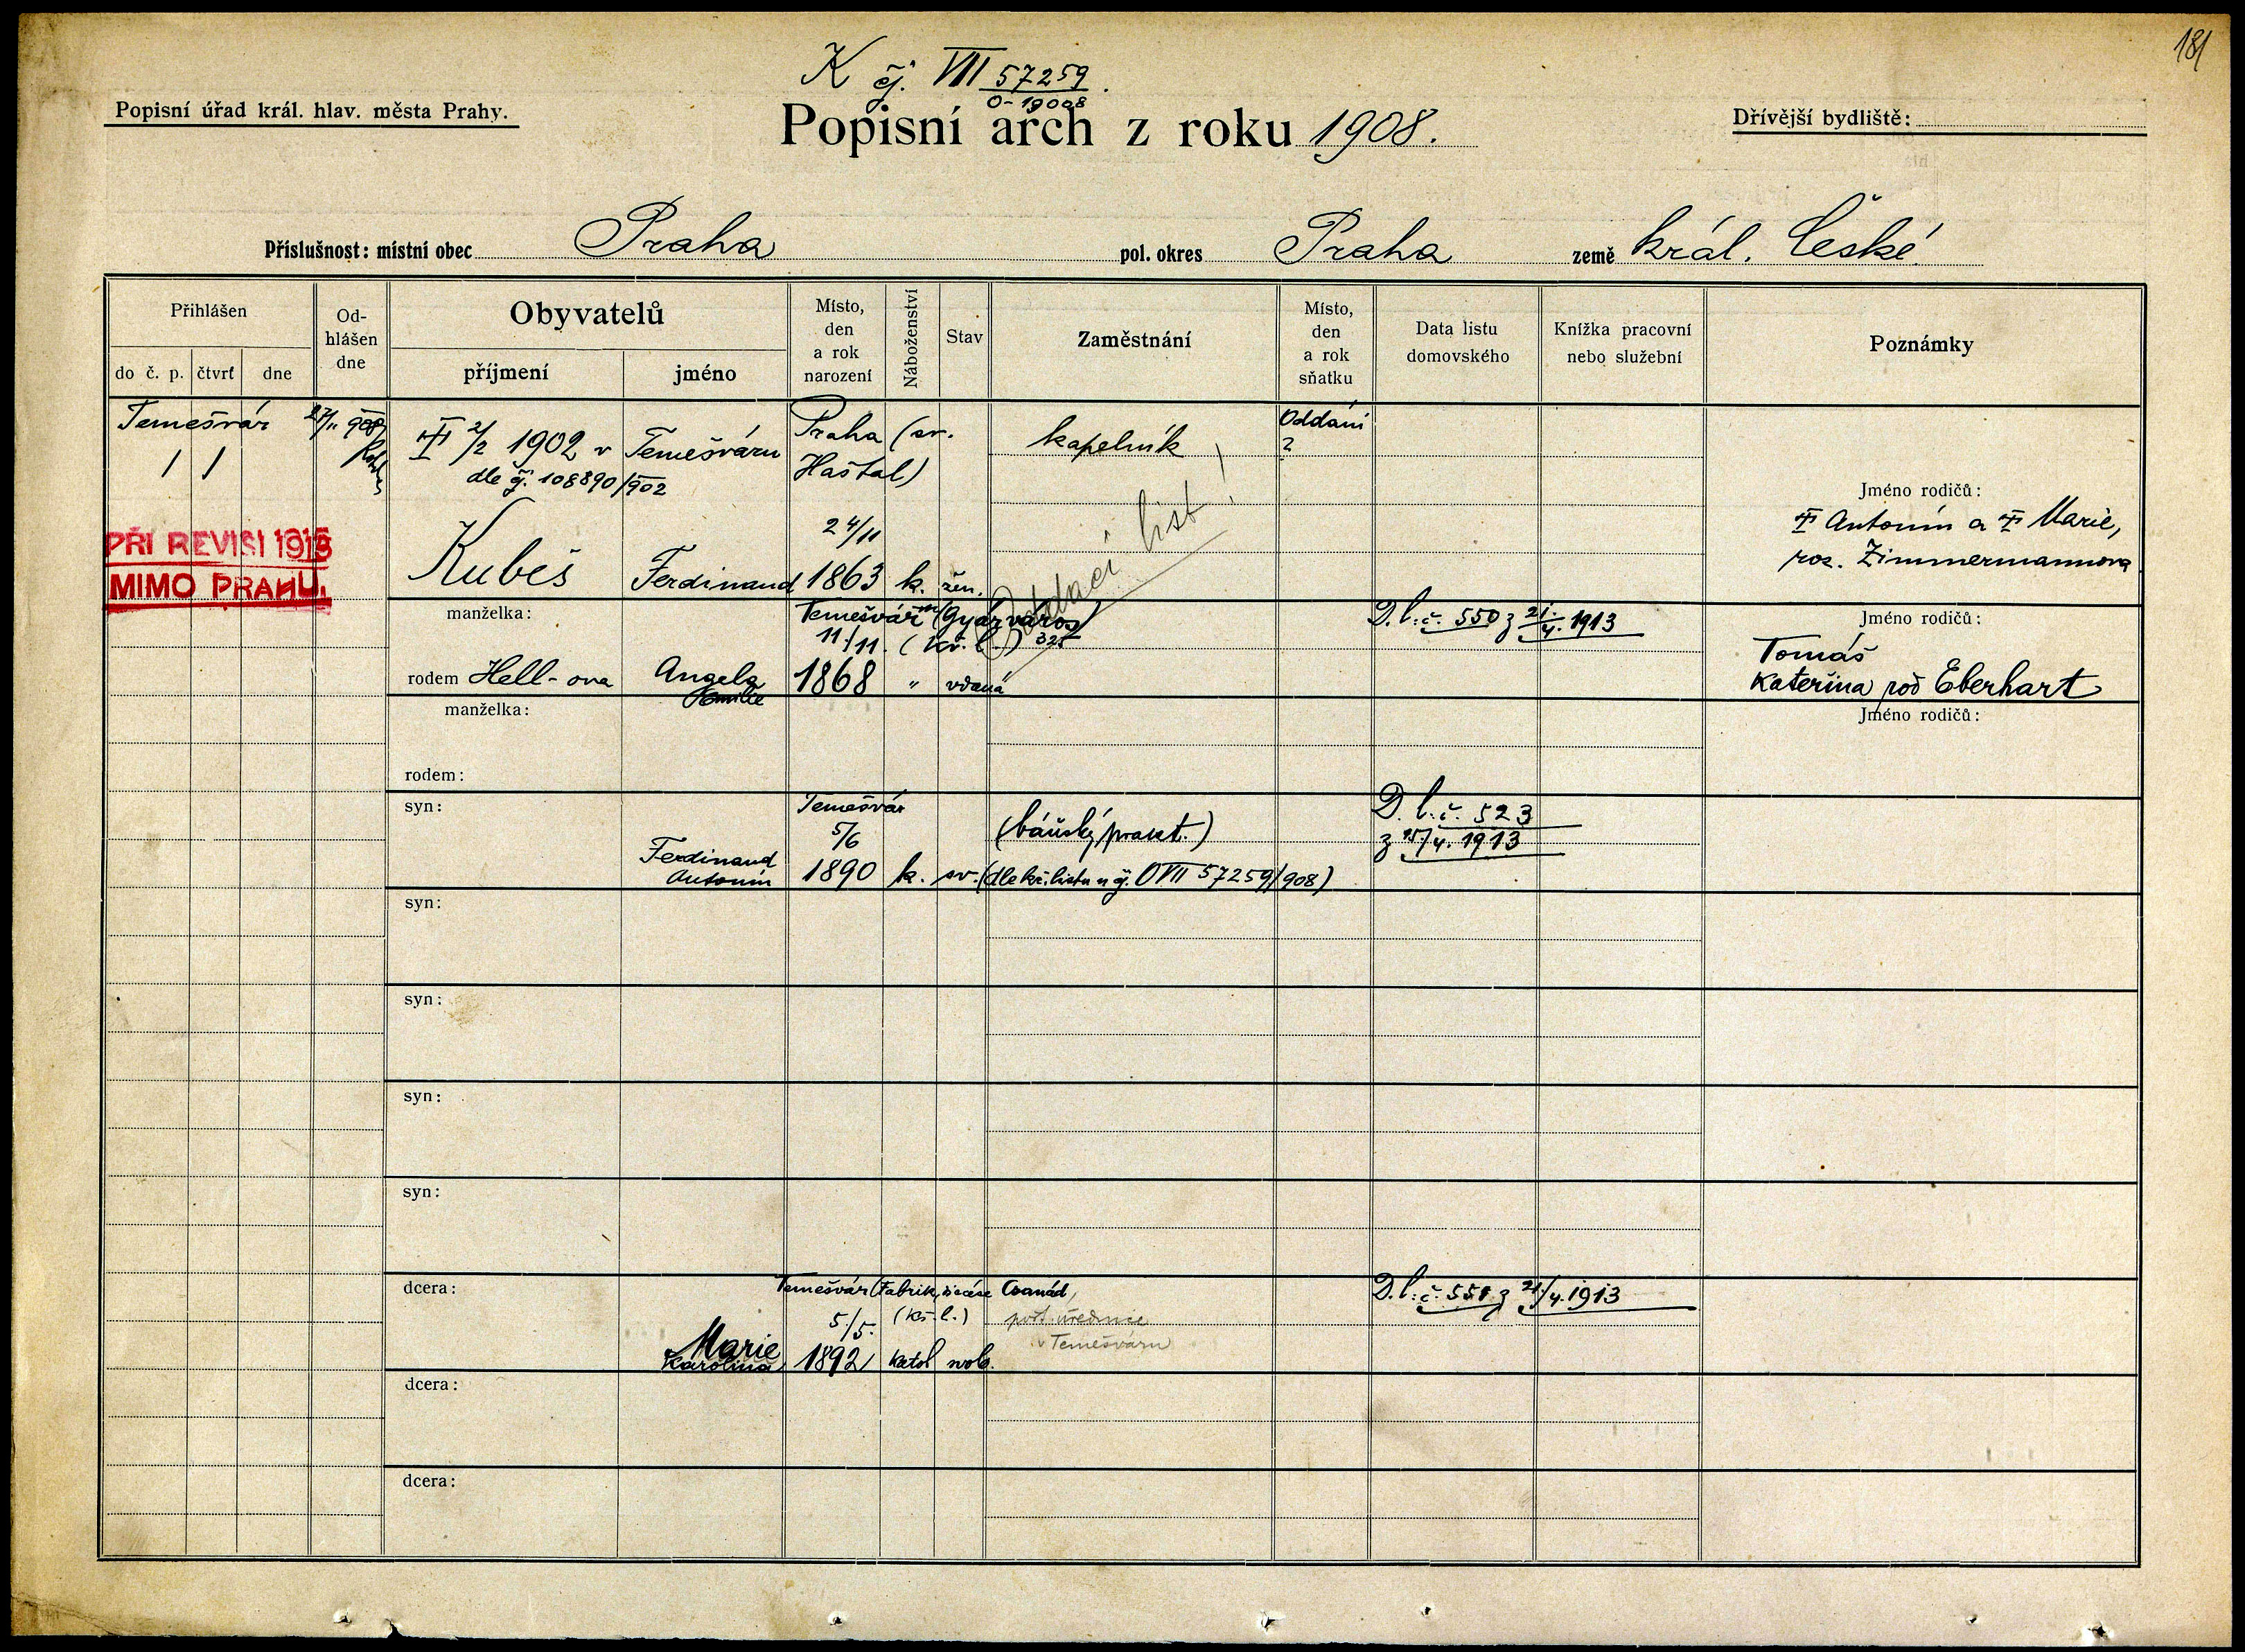 181
K čj. VII 57259
0-19008
Popisní úřad král. hlav. města Prahy.
Popisní arch z roku 1908.
Dřívější bydliště:
Příslušnost: místní obec Praha
pol. okres Praha
země král. České
Přihlášen
do č. p. čtvrť dne
Od-
hlášen
dne
Obyvatelů
příjmení jméno
Místo,
den
a rok
narození
Náboženství
Stav
Zaměstnání
Místo,
den
a rok
sňatku
Data listu
domovského
Knížka pracovní
nebo služební
Poznámky
Temešvár 27/11 908
† 2/2 1902 v Temešváru
dle čj. 108890/902
Praha (sv.
Haštal)
24/11
Kubeš Ferdinand 1863 k. žen.
kapelník
Oddáni
?
Oddací list!
Jméno rodičů:
† Antonín a † Marie,
roz. Zimmermannova
PŘI REVISI 1913
MIMO PRAHU.
manželka:
Temešvár (Gyárváros)
11/11. (kř. l.) 325
rodem Hell-ova Angela
Emilie
1868 " vdaná
D. l. č. 550 z 21./4. 1913
Jméno rodičů:
Tomáš
Kateřina roď Eberhart
manželka:
rodem:
Jméno rodičů:
syn:
Temešvár
5/6
Ferdinand
Antonín
1890 k. sv. (dle kř. listu u čj. O VII 57259/908)
(báňský prakt.)
D. l. č. 523
z 15/4. 1913
syn:
syn:
syn:
syn:
dcera:
Temešvár (Fabrik, diecése Csanád,
5/5. (kř. l.)
Marie
Karolina
1892 katol svob.
pošt. úřednice
v Temešváru
D. l. č. 551 z 21/4. 1913
dcera:
dcera: